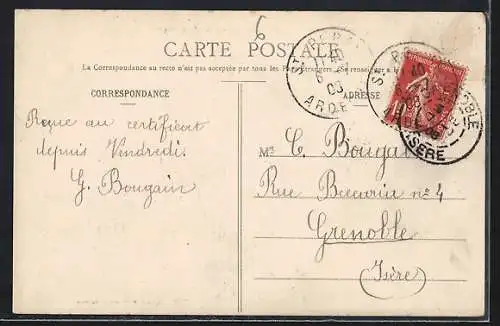 6
CARTE POSTALE
La Correspondance au recto n'est pas acceptée par tous les Pays Étrangers. (Se renseigner à la
CORRESPONDANCE
ADRESSE
Reçue au certificat
depuis Vendredi.
G. Bougain
Mr C. Bougain
Rue Beccaria n° 4
Grenoble
(Isère)
ARDE
ISÈRE
10